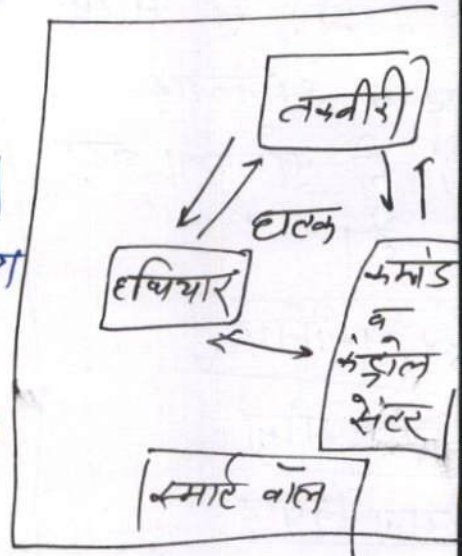 तकनीकी
घटक
हथियार
कमांड
व
कंट्रोल
सेंटर
स्मार्ट वॉल